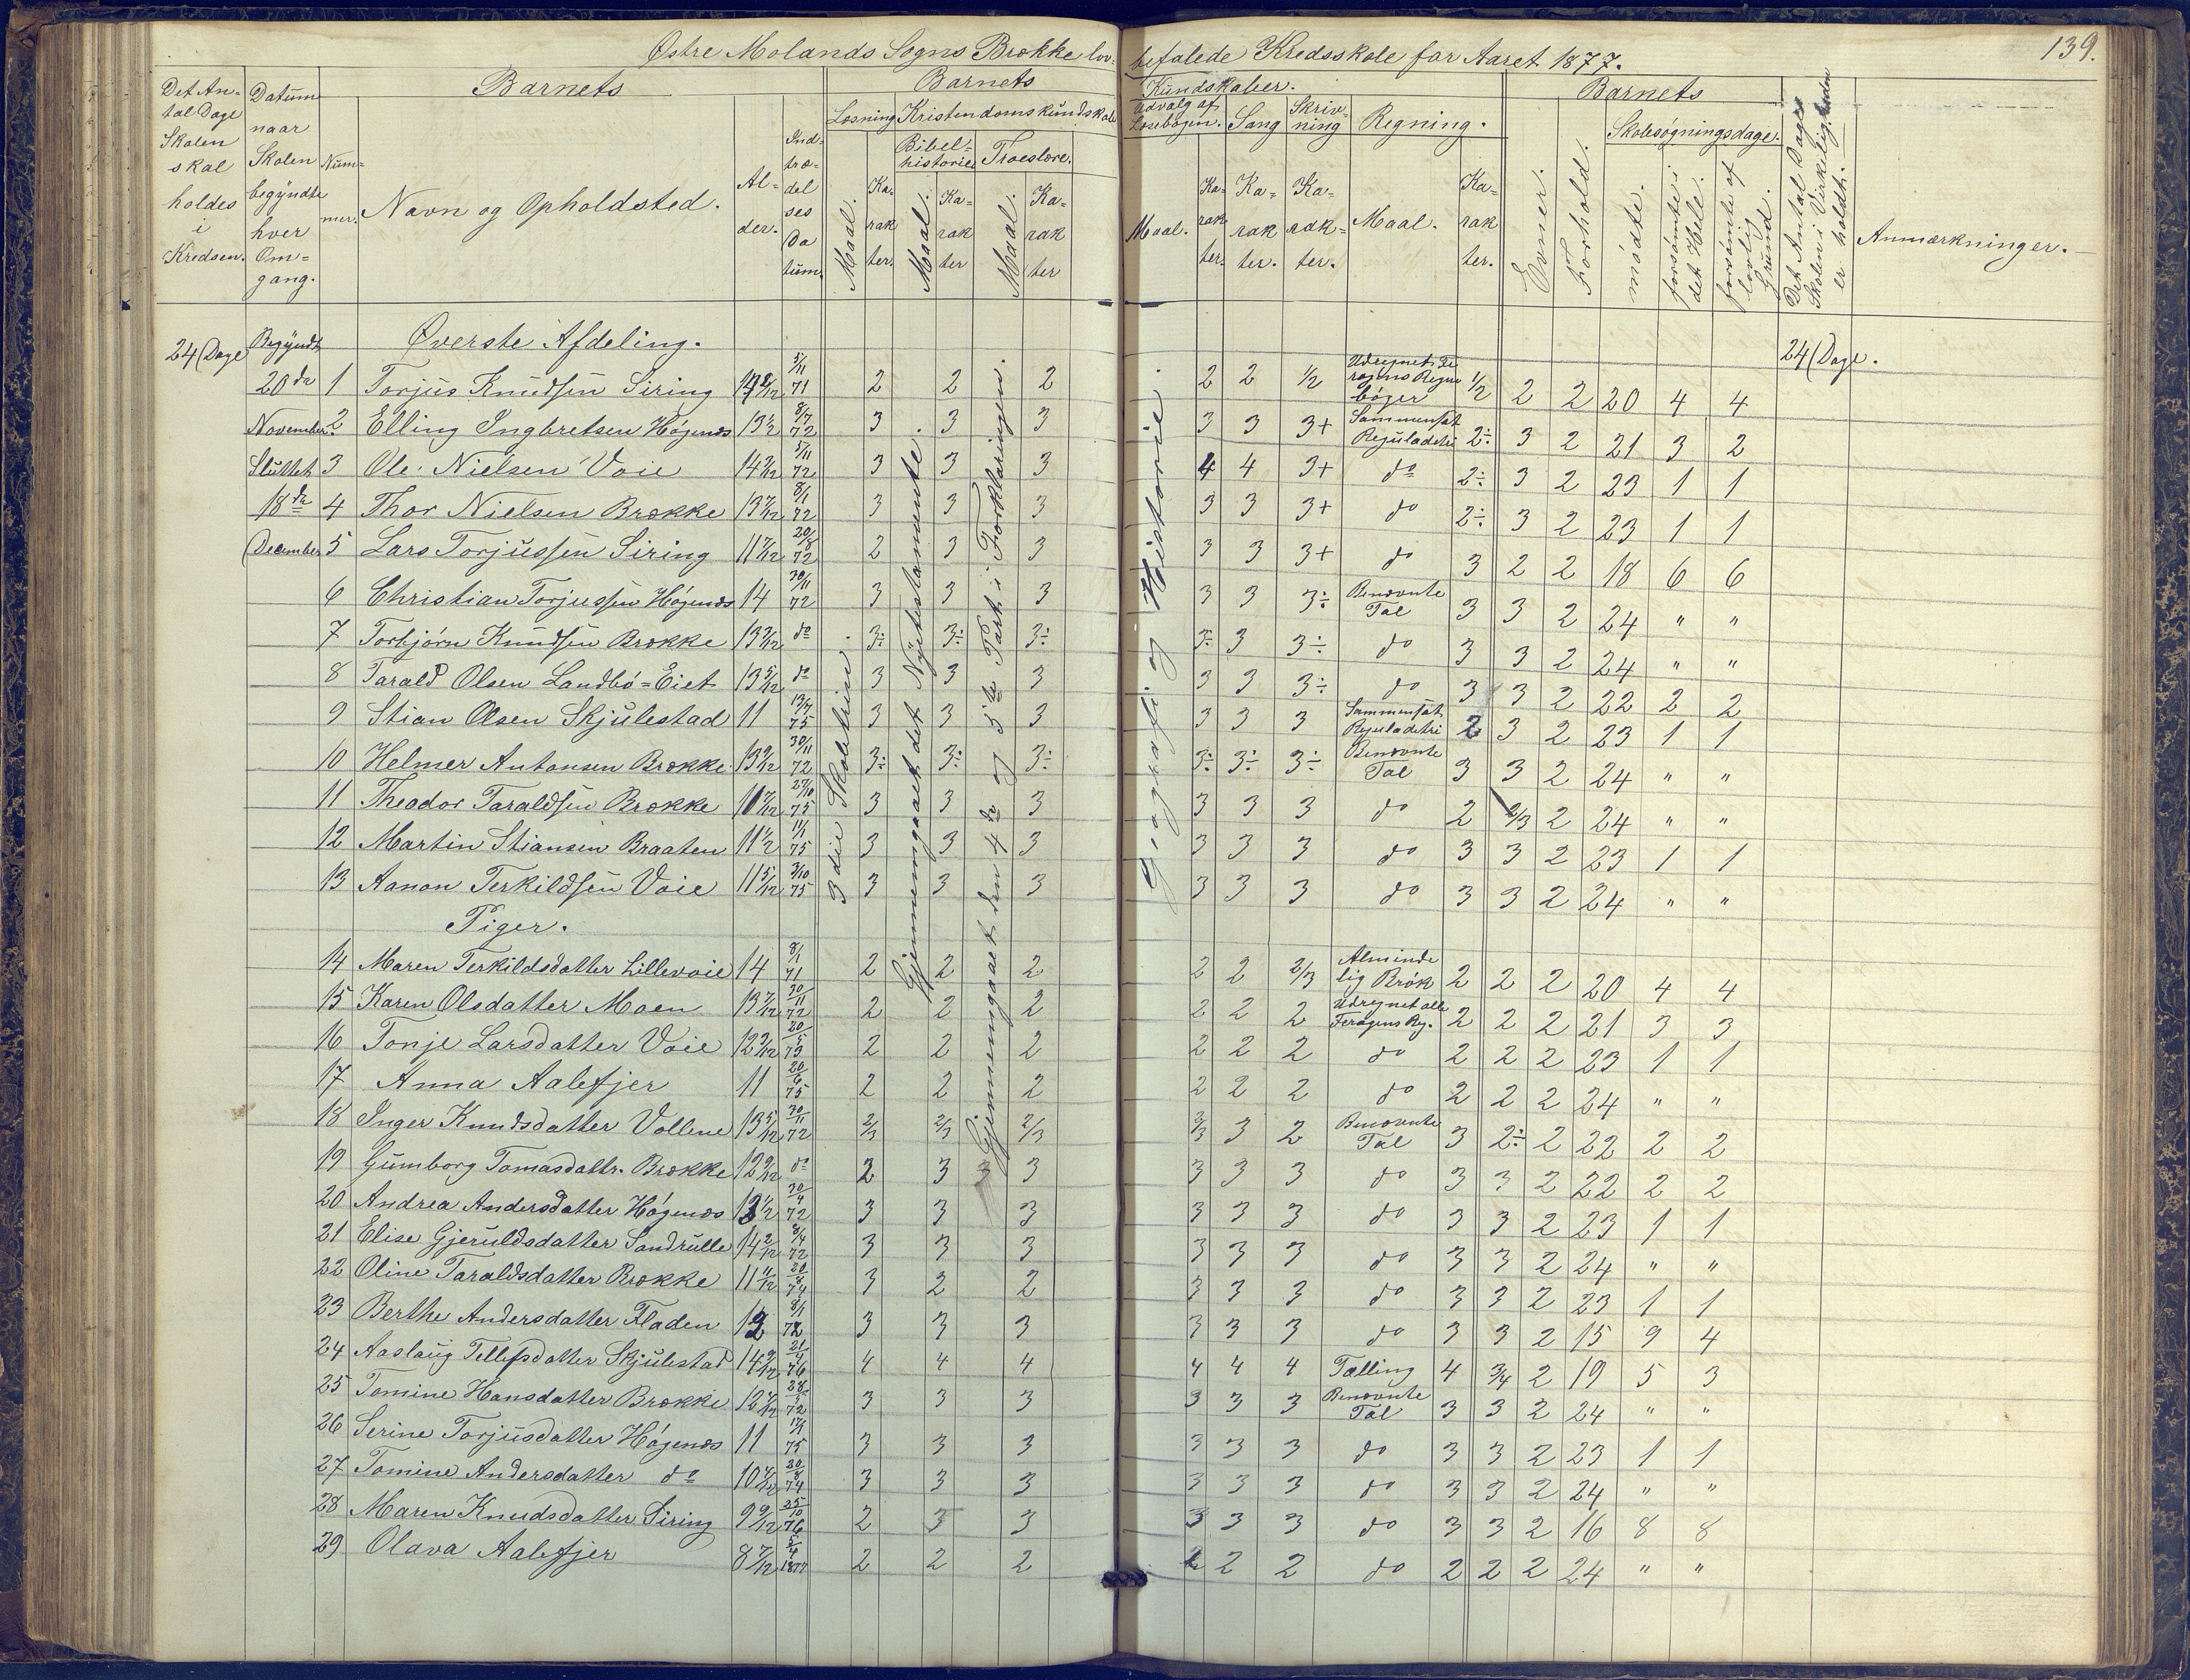 Østre Molands Sogns Brække lov- befalede Kredsskole for Aaret 1877. 139.
Det An- tal Dage Skolen skal holdes i Kredsen.
Datum naar Skolen begyndte hver Om- gang.
Num- mer.
Barnets
Navn og Opholdsted.
Al- der.
Ind- træ- del ses Da tum.
Barnets Kundskaber.
Læsning Kristendomskundskab
Maal. Ka- rak ter.
Bibel- historie Maal. Ka- rak ter
Troeslære. Maal. Ka- rak ter
Udvalg af Læsebogen. Maal. Ka- rak ter.
Sang Ka- rak ter.
Skriv- ning Ka- rak- ter.
Regning. Maal. Ka- rak ter.
Barnets
Evner. Forhold.
Skolesøgningsdage.
mødte. forsømte i det Hele. forsømte af lovlig Grund.
Det Antal Dage Skolen i Virkeligheden er holdt.
Anmærkninger.
24 Dage Begyndt 20de November. Sluttet 18de December
Øverste Afdeling.
24 Dage.
3die Skoletrin.
Gjennemgaaet det Nye Testamente.
Gjennemgaaet den 4de og 5te Part i Forklaringen.
Geografi og Historie.
1 Torjus Knudsen Siring 14 2/12 5/11 71 2 2 2 2 2 1/2 Udregnet Fe ragens Regne bøger 1/2 2 2 20 4 4
2 Elling Ingbretsen Høgenæs 13 1/2 8/7 72 3 3 3 3 3 3+ Sammensat Reguladetri 2÷ 3 2 21 3 2
3 Ole Nielsen Voie 14 2/12 5/11 72 3 3 3 4 4 3+ do 2÷ 3 2 23 1 1
4 Thor Nielsen Brække 13 7/12 8/1 72 3 3 3 3 3 3+ do 2÷ 3 2 23 1 1
5 Lars Torjussen Siring 11 7/12 20/8 72 2 3 3 3 3 3+ do 3 2 2 18 6 6
6 Christian Torjussen Høgenæs 14 30/11 72 3 3 3 3 3 3÷ Benævnte Tal 3 3 2 24 " "
7 Torbjørn Knudsen Brække 13 2/12 do 3÷ 3÷ 3÷ 3÷ 3 3÷ do 3 3 2 24 " "
8 Tarald Olsen Landbø=Eiet 13 5/12 do 3 3 3 3 3 3÷ do 3 3 2 22 2 2
9 Stian Olsen Skjulestad 11 12/7 75 3 3 3 3 3 3 Sammensat Reguladetri 2 3 2 23 1 1
10 Helmer Antonsen Brække 13 9/12 30/11 72 3÷ 3÷ 3÷ 3÷ 3÷ 3÷ Benævnte Tal 3 3 2 24 " "
11 Theodor Taraldsen Brække 10 7/12 27/10 75 3 3 3 3 3 3 do 2 2/3 2 24 " "
12 Martin Stiansen Braaten 11 1/2 11/1 75 3 3 3 3 3 3 do 3 3 2 23 1 1
13 Aanon Terkildsen Voie 11 5/12 2/10 75 3 3 3 3 3 3 do 3 3 2 24 " "
Piger.
14 Maren Terkildsdatter Lillevoie 14 8/1 71 2 2 2 2 2 2/3 Alminde lig Brøk 2 2 2 20 4 4
15 Karen Olsdatter Moen 13 7/12 30/11 72 2 2 2 2 2 2 Udregnet alle Feragens Reg. 2 2 2 21 3 3
16 Tonje Larsdatter Voie 12 3/12 20/5 73 2 2 2 2 2 2 do 2 2 2 23 1 1
17 Anna Aalefjer 11 20/6 75 2 2 2 2 2 2 do 2 2 2 24 " "
18 Inger Knudsdatter Vollene 13 5/12 30/11 72 2/3 2/3 2/3 2/3 3 2 Benævnte Tal 3 2÷ 2 22 2 2
19 Gumborg Tomasdattr. Brække 12 9/12 do 2 3 3 3 3 3 do 3 3 2 22 2 2
20 Andrea Andersdatter Høgenæs 13 1/2 30/4 72 3 3 3 3 3 3 do 3 3 2 23 1 1
21 Elise Gjeruldsdatter Sandrulle 14 2/12 8/4 72 3 3 3 3 3 3 do 3 3 2 24 " "
22 Oline Taraldsdatter Brække 11 11/12 20/8 74 3 2 2 3 3 3 do 3 3 2 23 1 1
23 Berthe Andersdatter Fladen 12 8/1 72 3 3 3 3 3 3 do 3 3 2 15 9 4
24 Aaslaug Tellefsdatter Skjulestad 14 9/12 21/4 76 4 4 4 4 4 4 Tælling 4 3/4 2 19 5 3
25 Tomine Hansdatter Brække 12 7/12 28/5 72 3 3 3 3 3 3 Benævnte Tal 3 3 2 24 " "
26 Serine Torjusdatter Høgenæs 11 17/1 75 3 3 3 3 3 3 do 3 3 2 23 1 1
27 Tomine Andersdatter do 10 7/12 20/8 74 3 3 3 3 3 3 do 3 3 2 24 " "
28 Maren Knudsdatter Siring 9 9/12 25/10 76 2 3 3 3 3 3 do 3 3 2 16 8 8
29 Olava Aalefjer 8 7/12 5/4 1877 2 2 2 2 2 2 do 2 2 2 24 " "